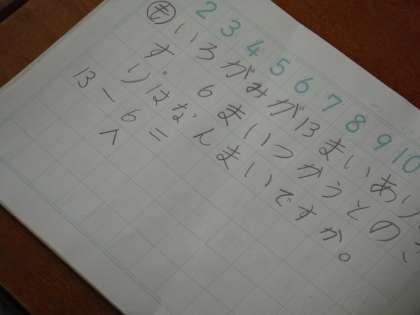 2 3 4 5 6 7 8 9 10
も いろがみが13まいあり
す。6まいつかうとのこ
りはなんまいですか。
13-6=
へ